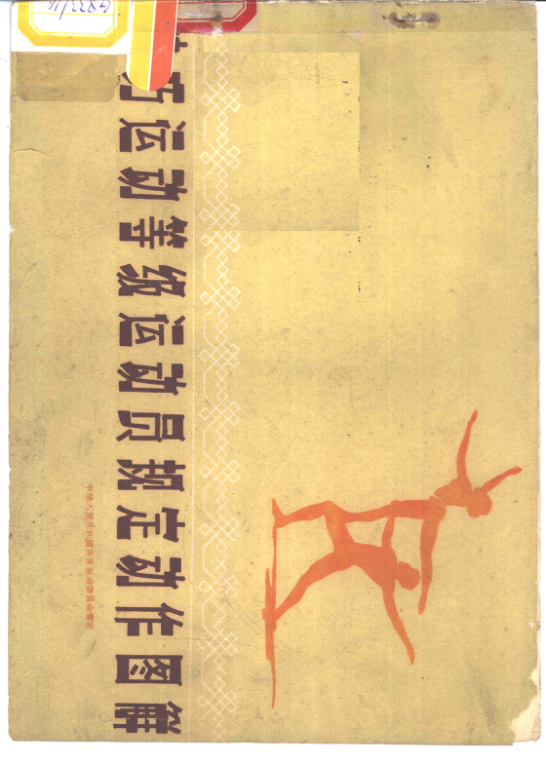 巧运动等级运动员规定动作图解
中华人民共和国体育运动委员会审定